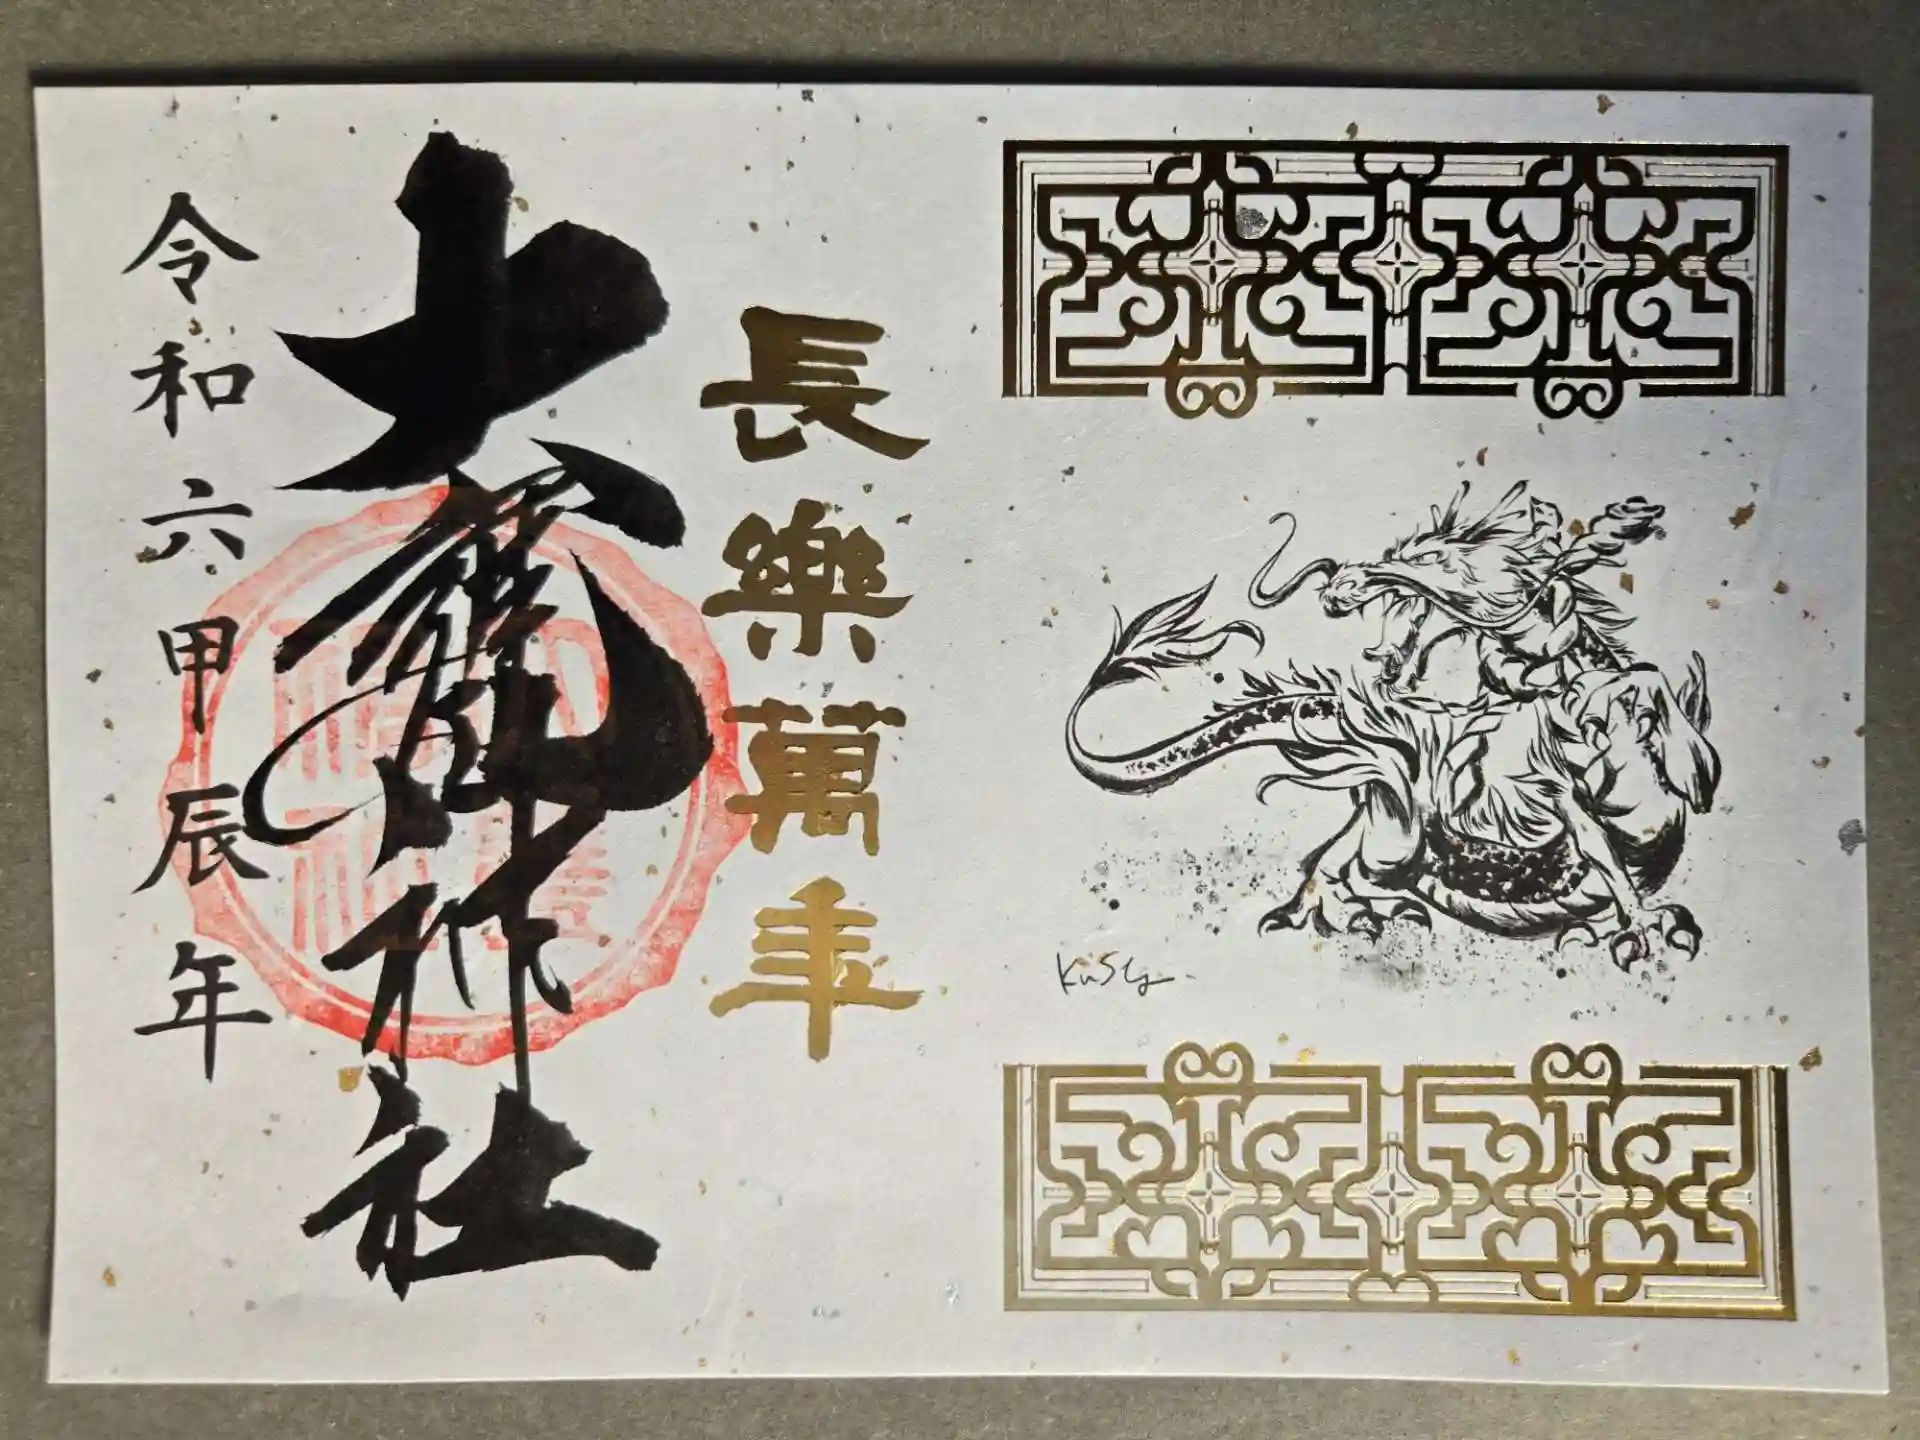 長樂萬年
大龍神社
令和六甲辰年
KuSly